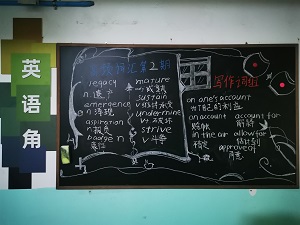 英语角
第2期
legacy
n.遗产
emergence
n.浮现
aspiration
n.抱负
mature
成熟
sustain
undermine
strive
v.斗争
写作词组
on one's account
为了某人的利益
on account
赊账
in the air
account for
解释
allow for
估计到
approve of
同意